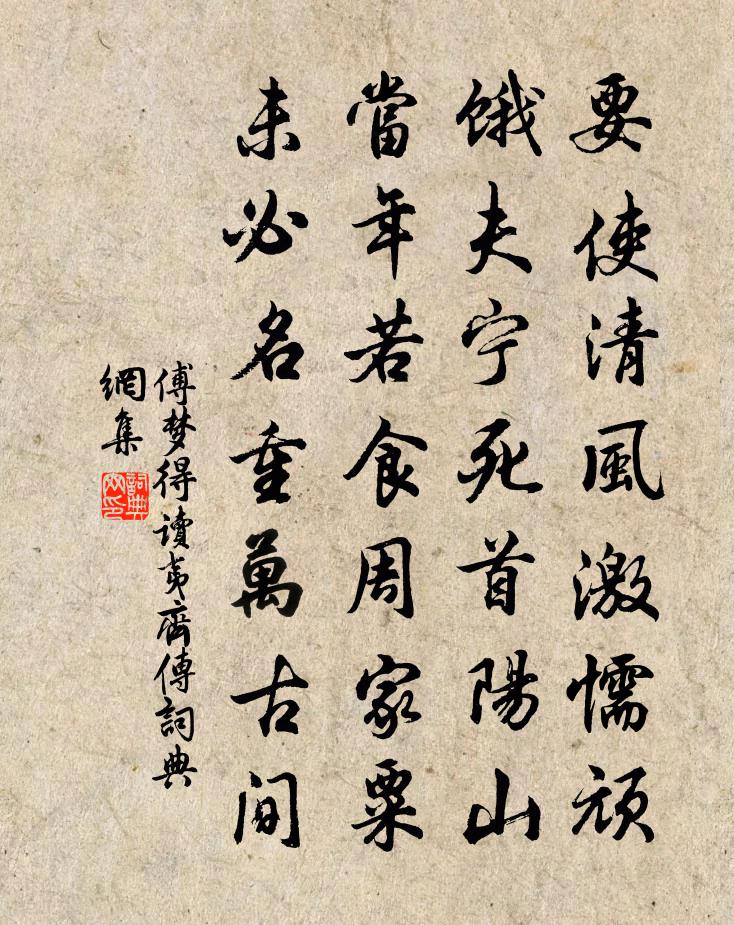 要使清風激懦頑
餓夫宁死首陽山
當年若食周家粟
未必名重萬古间
傅梦得讀夷齊傳詞典
網集
詞典
網印